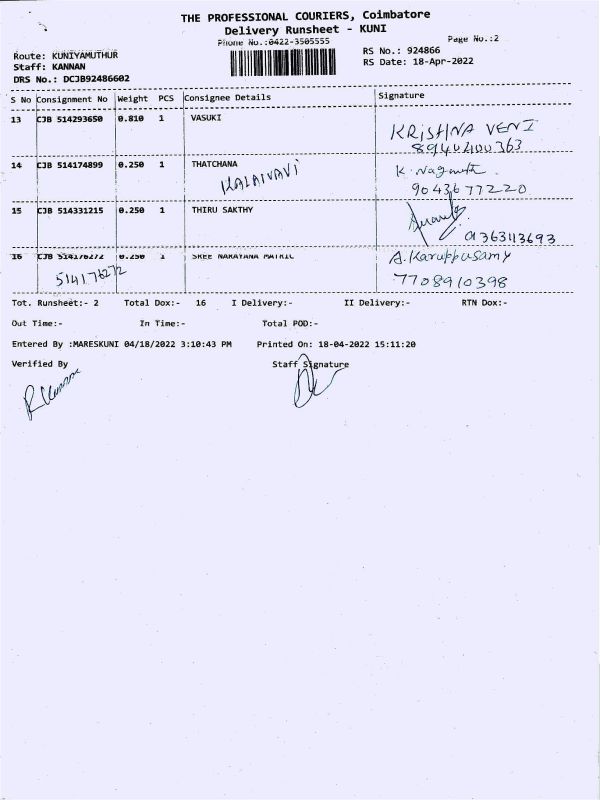 THE PROFESSIONAL COURIERS, Coimbatore
Delivery Runsheet - KUNI
Phone No.:0422-3505555
Page No.:2
Route: KUNIYAMUTHUR
RS No.: 924866
Staff: KANNAN
RS Date: 18-Apr-2022
DRS No.: DCJB92486602
S No Consignment No Weight PCS Consignee Details Signature
13 CJB 514293650 0.810 1 VASUKI
KRISHNA VENI
89402400363
14 CJB 514174899 0.250 1 THATCHANA
KALAIVAVI
9043677220
15 CJB 514331215 0.250 1 THIRU SAKTHY
16 CJB 514176272 0.250 1 SREE NARAYANA MATRIC
A. Karuppusamy
514176272
7708910398
Tot. Runsheet:- 2 Total Dox:- 16 I Delivery:- II Delivery:- RTN Dox:-
Out Time:- In Time:- Total POD:-
Entered By :MARESKUNI 04/18/2022 3:10:43 PM Printed On: 18-04-2022 15:11:20
Verified By Staff Signature